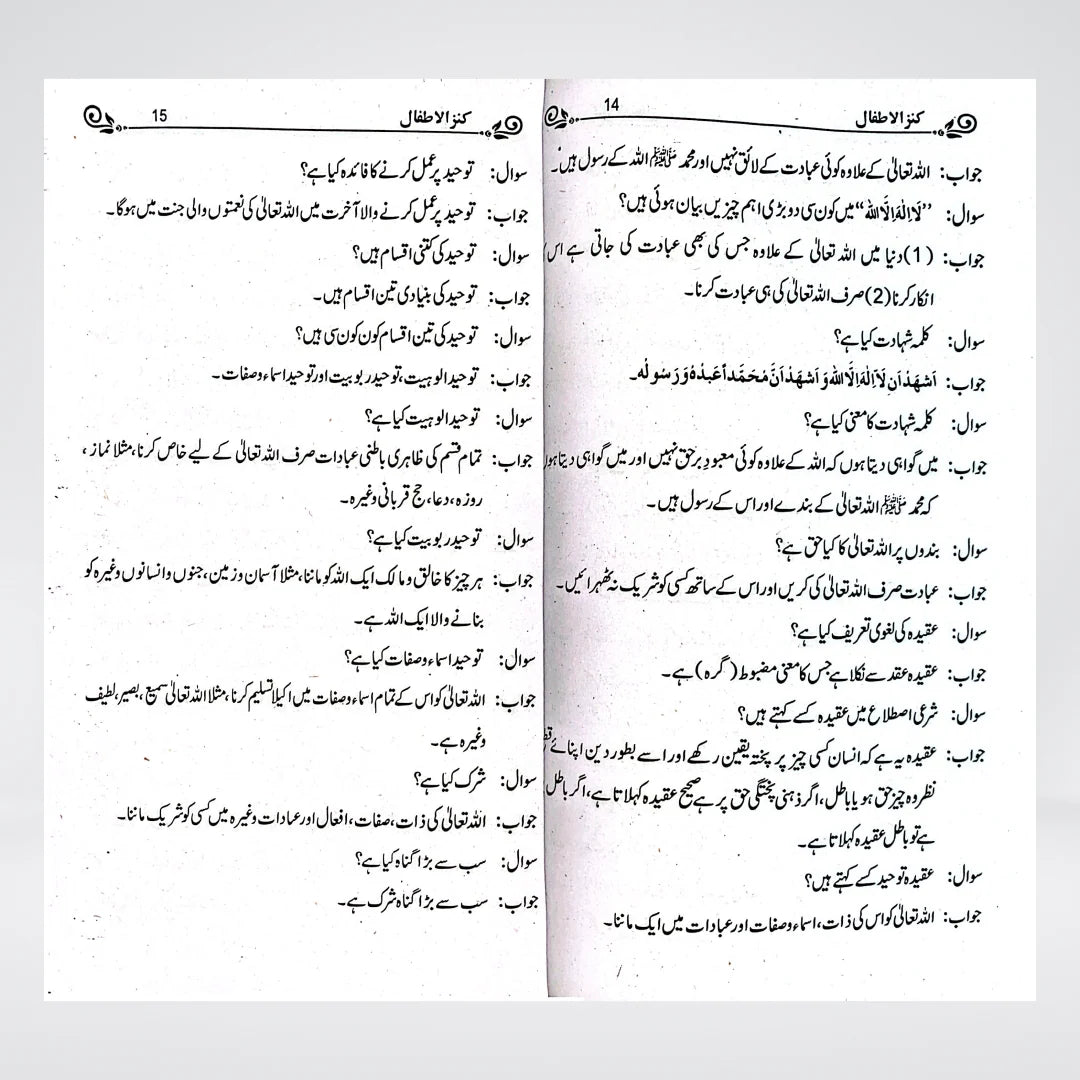 کنز الاطفال 14
جواب: اللہ تعالیٰ کے علاوہ کوئی عبادت کے لائق نہیں اور محمد ﷺ اللہ کے رسول ہیں۔
سوال: ”لَا اِلٰهَ اِلَّا اللّٰه“ میں کون سی دو بڑی اہم چیزیں بیان ہوئی ہیں؟
جواب: (1) دنیا میں اللہ تعالیٰ کے علاوہ جس کی بھی عبادت کی جاتی ہے اس
انکار کرنا (2) صرف اللہ تعالیٰ کی ہی عبادت کرنا۔
سوال: کلمہ شہادت کیا ہے؟
جواب: اَشْهَدُ اَن لَّا اِلٰهَ اِلَّا اللّٰه وَ اَشْهَدُ اَنَّ مُحَمَّداً عَبدُهُ وَ رَسُولُه۔
سوال: کلمہ شہادت کا معنی کیا ہے؟
جواب: میں گواہی دیتا ہوں کہ اللہ کے علاوہ کوئی معبودِ برحق نہیں اور میں گواہی دیتا ہوں
کہ محمد ﷺ اللہ تعالیٰ کے بندے اور اس کے رسول ہیں۔
سوال: بندوں پر اللہ تعالیٰ کا کیا حق ہے؟
جواب: عبادت صرف اللہ تعالیٰ کی کریں اور اس کے ساتھ کسی کو شریک نہ ٹھہرائیں۔
سوال: عقیدہ کی لغوی تعریف کیا ہے؟
جواب: عقیدہ عقد سے نکلا ہے جس کا معنی مضبوط (گرہ) ہے۔
سوال: شرعی اصطلاع میں عقیدہ کسے کہتے ہیں؟
جواب: عقیدہ یہ ہے کہ انسان کسی چیز پر پختہ یقین رکھے اور اسے بطور دین اپنائے
نظر وہ چیز حق ہو یا باطل، اگر ذہنی پختگی حق پر ہے صحیح عقیدہ کہلاتا ہے، اگر باطل
ہے تو باطل عقیدہ کہلاتا ہے۔
سوال: عقیدہ توحید کسے کہتے ہیں؟
جواب: اللہ تعالیٰ کو اس کی ذات، اسماء و صفات اور عبادات میں ایک ماننا۔
کنز الاطفال 15
سوال: توحید پر عمل کرنے کا فائدہ کیا ہے؟
جواب: توحید پر عمل کرنے والا آخرت میں اللہ تعالیٰ کی نعمتوں والی جنت میں ہوگا۔
سوال: توحید کی کتنی اقسام ہیں؟
جواب: توحید کی بنیادی تین اقسام ہیں۔
سوال: توحید کی تین اقسام کون کون سی ہیں؟
جواب: توحید الوہیت، توحید ربوبیت اور توحید اسماء و صفات۔
سوال: توحید الوہیت کیا ہے؟
جواب: تمام قسم کی ظاہری باطنی عبادات صرف اللہ تعالیٰ کے لیے خاص کرنا، مثلا نماز،
روزہ، دعا، حج قربانی وغیرہ۔
سوال: توحید ربوبیت کیا ہے؟
جواب: ہر چیز کا خالق و مالک ایک اللہ کو ماننا، مثلا آسمان و زمین، جنوں و انسانوں وغیرہ کو
بنانے والا ایک اللہ ہے۔
سوال: توحید اسماء و صفات کیا ہے؟
جواب: اللہ تعالیٰ کو اس کے تمام اسماء و صفات میں اکیلا تسلیم کرنا، مثلا اللہ تعالیٰ سمیع، بصیر، لطیف
وغیرہ ہے۔
سوال: شرک کیا ہے؟
جواب: اللہ تعالیٰ کی ذات، صفات، افعال اور عبادات وغیرہ میں کسی کو شریک ماننا۔
سوال: سب سے بڑا گناہ کیا ہے؟
جواب: سب سے بڑا گناہ شرک ہے۔